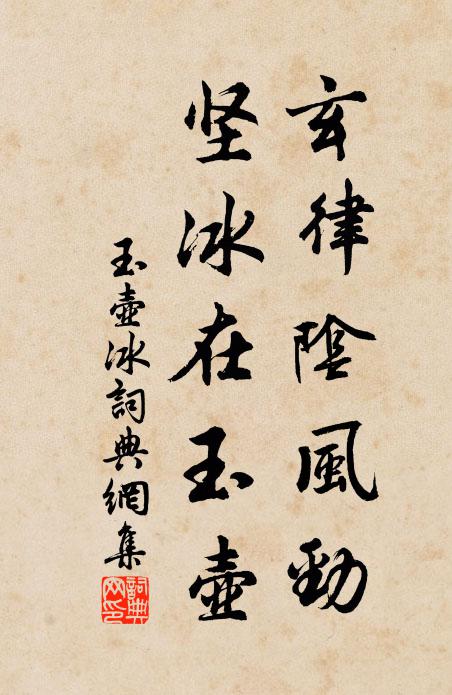 玄律陰風勁
坚冰在玉壺
玉壺冰詞典網集
詞典網印